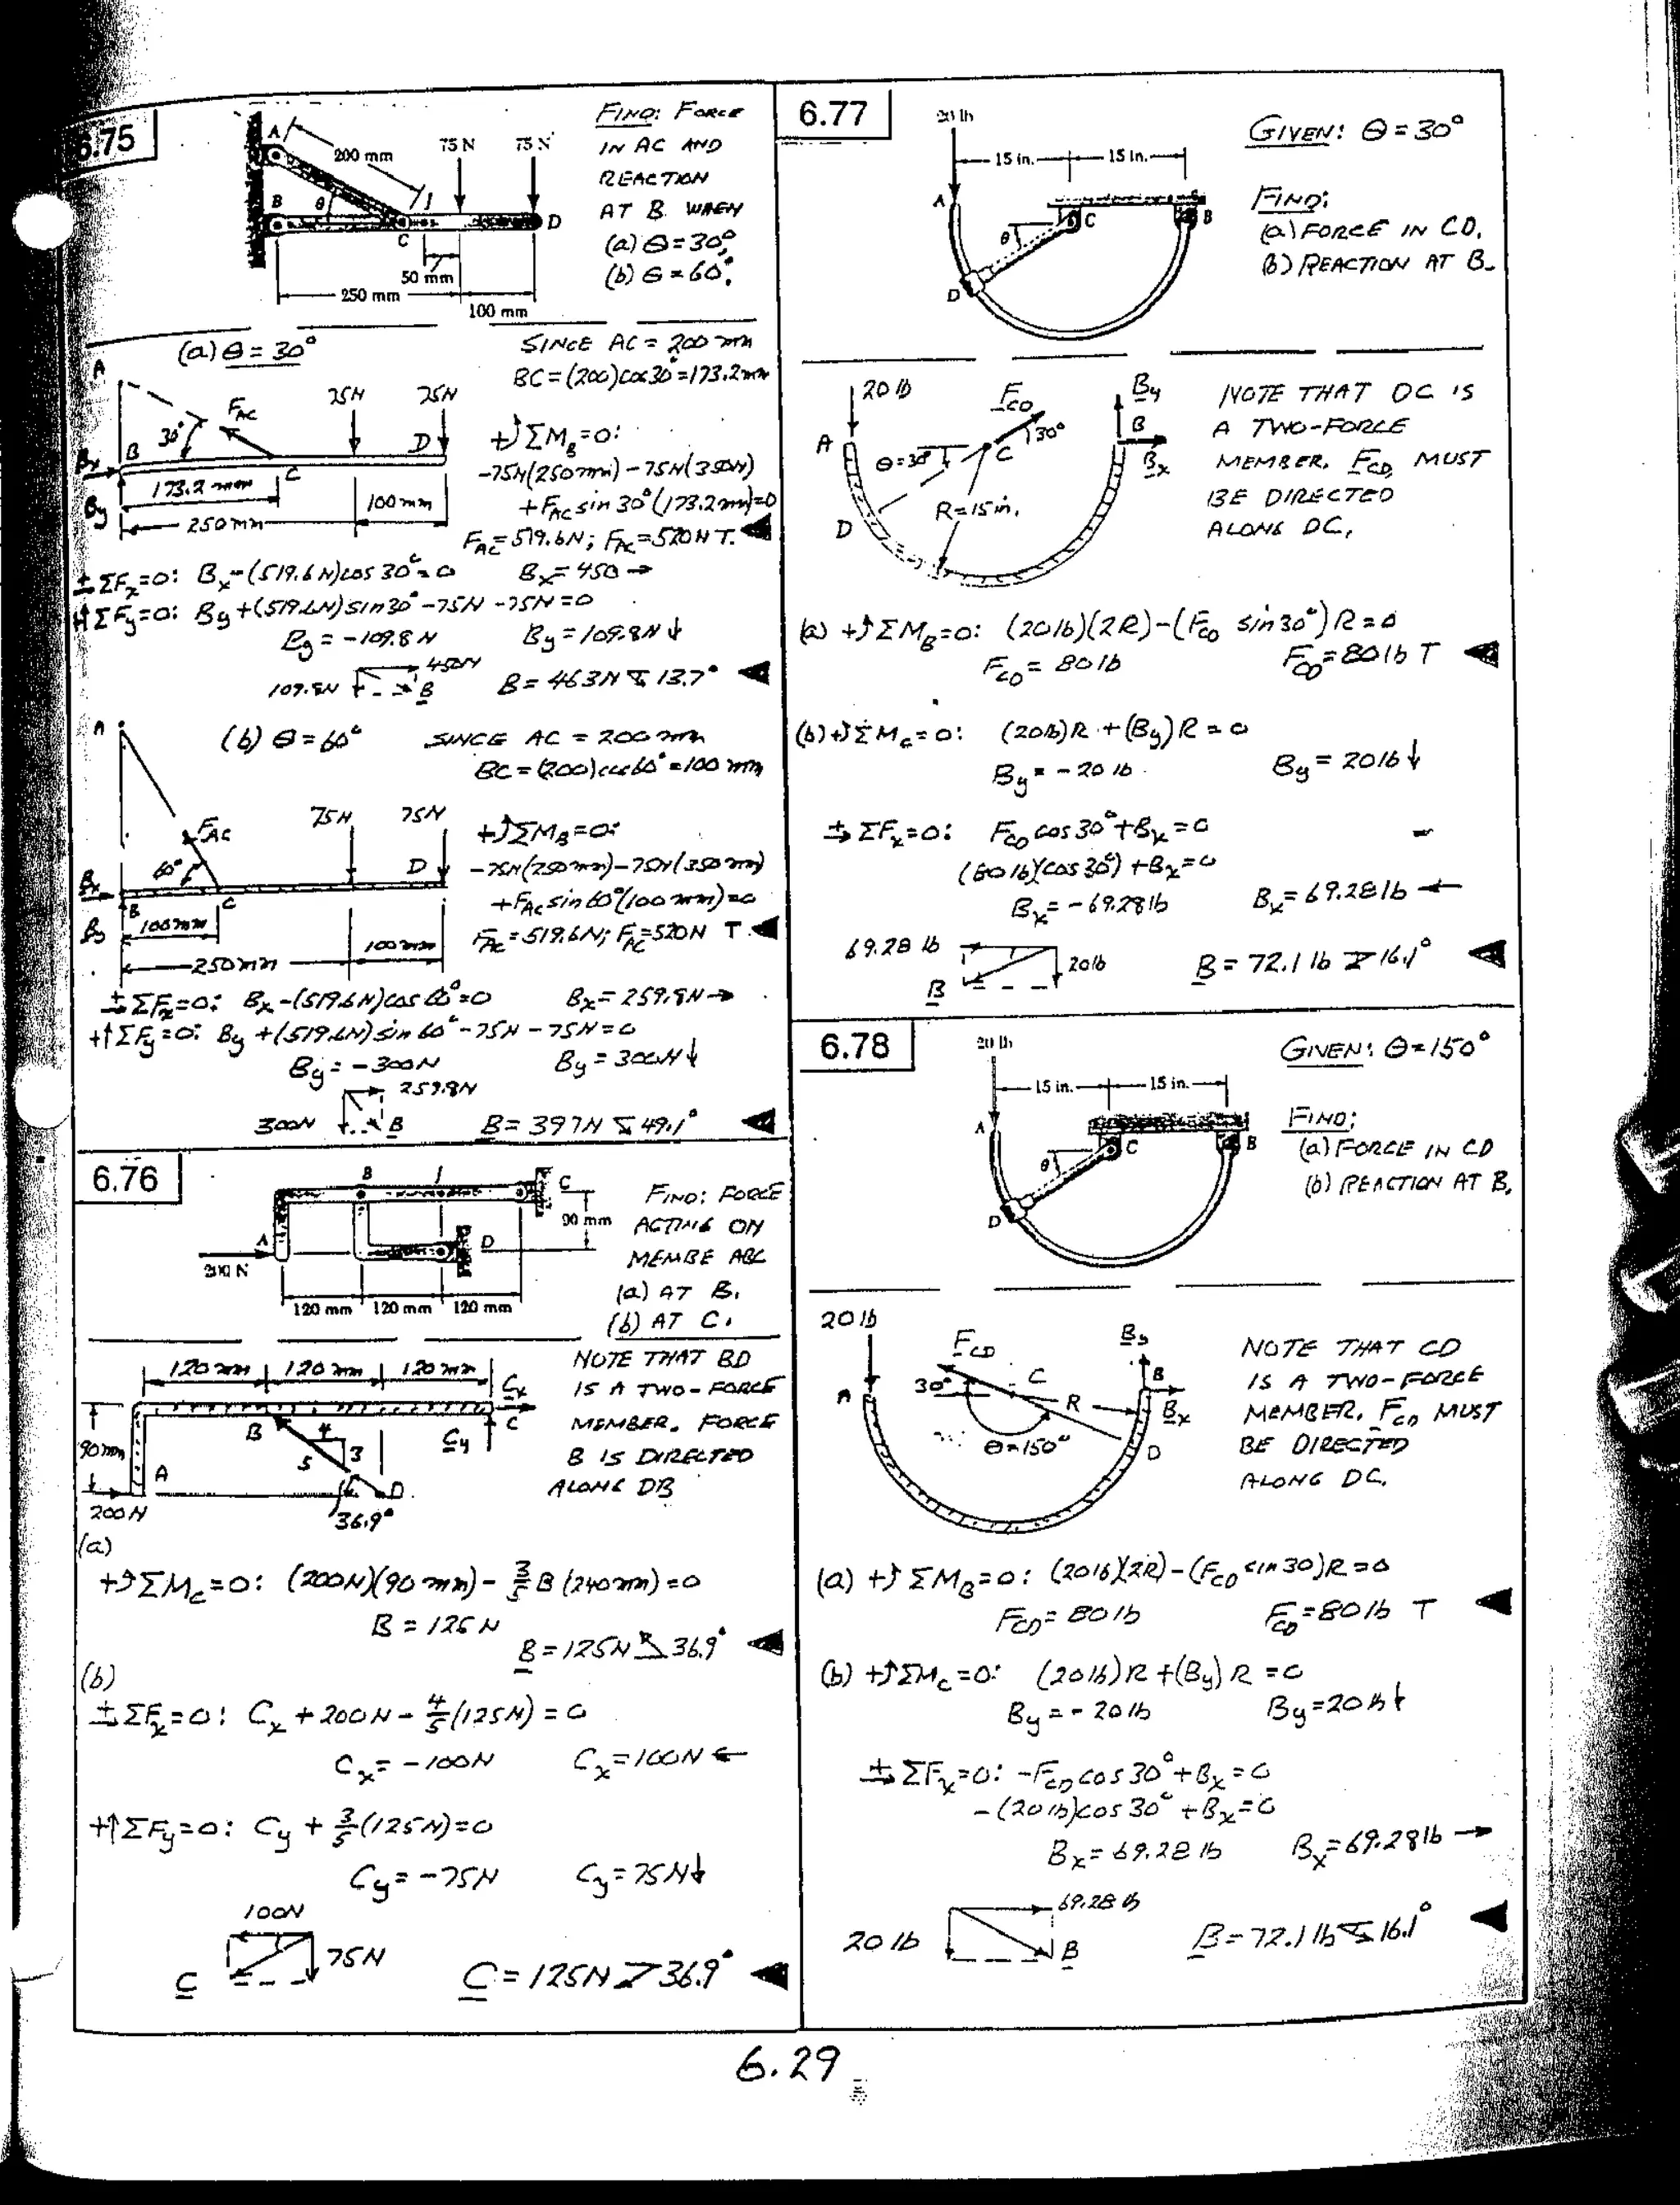 6.75
FIND: FORCE
IN AC AND
REACTION
AT B WHEN
(a) θ = 30°,
(b) θ = 60°.
A
200 mm
75 N
75 N
B
θ
C
D
50 mm
250 mm
100 mm
(a) θ = 30°
SINCE AC = 200 mm
BC = (200)cos 30° = 173.2 mm
A
F_AC
30°
75N
75N
B
C
D
B_x
B_y
173.2 mm
100 mm
250 mm
+↺ ΣM_B = 0:
-75N(250 mm) - 75N(350N)
+ F_AC sin 30°(173.2 mm) = 0
F_AC = 519.6N; F_AC = 520N T. ◄
+→ ΣF_x = 0: B_x - (519.6 N)cos 30° = 0 B_x = 450 →
+↑ ΣF_y = 0: B_y + (519.6N) sin 30° - 75N - 75N = 0
B_y = -109.8 N B_y = 109.8N ↓
450N
109.8N B B = 463N ⦪ 13.7° ◄
A
(b) θ = 60° SINCE AC = 200 mm
BC = (200)cos 60° = 100 mm
F_AC
75N
75N
60°
D
B_x
B
C
B_y
100 mm
100 mm
250 mm
+↺ ΣM_B = 0:
-75N(250 mm) - 75N(350 mm)
+ F_AC sin 60°(100 mm) = 0
F_AC = 519.6N; F_AC = 520N T ◄
+→ ΣF_x = 0: B_x - (519.6N)cos 60° = 0 B_x = 259.8N →
+↑ ΣF_y = 0: B_y + (519.6N) sin 60° - 75N - 75N = 0
B_y = -300N B_y = 300N ↓
259.8N
300N B B = 397N ⦪ 49.1° ◄
6.76
B
C
90 mm
A
D
200 N
120 mm 120 mm 120 mm
FIND: FORCE
ACTING ON
MEMBE ABC
(a) AT B.
(b) AT C.
120 mm 120 mm 120 mm
C_x
C
C_y
B
4
3
5
90 mm
A
D
200 N
36.9°
NOTE THAT BD
IS A TWO-FORCE
MEMBER. FORCE
B IS DIRECTED
ALONG DB
(a)
+↺ ΣM_C = 0: (200N)(90 mm) - 3/5 B (240 mm) = 0
B = 125 N
B = 125N ⦩ 36.9° ◄
(b)
+→ ΣF_x = 0: C_x + 200N - 4/5 (125N) = 0
C_x = -100N C_x = 100N ←
+↑ ΣF_y = 0: C_y + 3/5 (125N) = 0
C_y = -75N C_y = 75N ↓
100N
75N
C C = 125N 36.9° ◄
6.77
20 lb
15 in. 15 in.
A
C
B
θ
D
GIVEN: θ = 30°
FIND:
(a) FORCE IN CD,
(b) REACTION AT B.
20 lb
F_CD
B_y
B
30°
A
θ = 30°
C
B_x
R = 15 in.
D
NOTE THAT DC IS
A TWO-FORCE
MEMBER. F_CD MUST
BE DIRECTED
ALONG DC.
(a) +↺ ΣM_B = 0: (20 lb)(2R) - (F_CD sin 30°) R = 0
F_CD = 80 lb F_CD = 80 lb T ◄
(b) +↺ ΣM_C = 0: (20 lb) R + (B_y) R = 0
B_y = -20 lb B_y = 20 lb ↓
+→ ΣF_x = 0: F_CD cos 30° + B_x = 0
(80 lb)(cos 30°) + B_x = 0
B_x = -69.28 lb B_x = 69.28 lb ←
69.28 lb
20 lb
B B = 72.1 lb 16.1° ◄
6.78
20 lb
15 in. 15 in.
A
C
B
θ
D
GIVEN: θ = 150°
FIND:
(a) FORCE IN CD
(b) REACTION AT B.
20 lb
F_CD
B_y
B
30°
C
A
R
B_x
θ = 150°
D
NOTE THAT CD
IS A TWO-FORCE
MEMBER. F_CD MUST
BE DIRECTED
ALONG DC.
(a) +↺ ΣM_B = 0: (20 lb)(2R) - (F_CD sin 30) R = 0
F_CD = 80 lb F_CD = 80 lb T ◄
(b) +↺ ΣM_C = 0: (20 lb) R + (B_y) R = 0
B_y = -20 lb B_y = 20 lb ↓
+→ ΣF_x = 0: -F_CD cos 30° + B_x = 0
-(20 lb)cos 30° + B_x = 0
B_x = 69.28 lb B_x = 69.28 lb →
69.28 lb
20 lb B B = 72.1 lb ⦪ 16.1° ◄
6.29